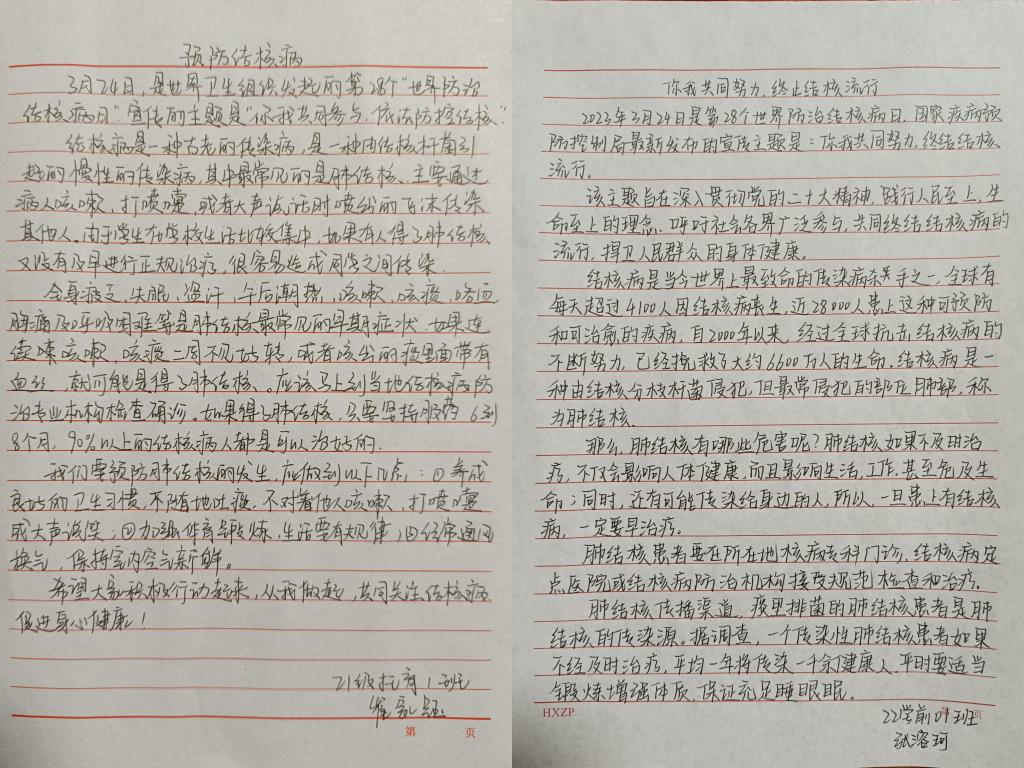 预防结核病
3月24日，是世界卫生组织发起的第28个"世界防治
结核病日"宣传的主题是"你我共同参与，依法防控结核"
结核病是一种古老的传染病，是一种由结核杆菌引
起的慢性的传染病，其中最常见的是肺结核、主要通过
病人咳嗽、打喷嚏，或者大声说话时喷出的飞沫传染
其他人。由于学生在学校生活比较集中，如果有人得了肺结核
又没有及早进行正规治疗，很容易造成同学之间传染.
全身疲乏、失眠、盗汗、午后潮热，咳嗽、咳痰、咯血
胸痛及呼吸困难等是肺结核最常见的早期症状，如果连
续咳嗽、咳痰二周不见好转，或者咳出的痰里面带有
血丝，就可能是得了肺结核、应该马上到当地结核病防
治专业机构检查确诊。如果得了肺结核，只要坚持服药6到
8个月，90%以上的结核病人都是可以治好的.
我们要预防肺结核的发生，应做到以下几点：①养成
良好的卫生习惯，不随地吐痰，不对着他人咳嗽、打喷嚏
或大声说笑；②加强体育锻炼，生活要有规律；④经常通风
换气，保持室内空气新鲜。
希望大家积极行动起来，从我做起，共同关注结核病
促进身心健康！
21级托育1班
第 页
你我共同努力，终止结核流行
2023年3月24日是第28个世界防治结核病日，国家疾病预
防控制局最新发布的宣传主题是：你我共同努力，终结结核
流行。
该主题旨在深入贯彻党的二十大精神，践行人民至上，生
命至上的理念，呼吁社会各界广泛参与，共同终结结核病的
流行，捍卫人民群众的身体健康。
结核病是当今世界上最致命的传染病杀手之一，全球有
每天超过4100人因结核病丧生，近28000人患上这种可预防
和可治愈的疾病，自2000年以来，经过全球抗击结核病的
不断努力，已经挽救了大约6600万人的生命。结核病是一
种由结核分枝杆菌侵犯，但最常侵犯的部位肺部，称
为肺结核.
那么，肺结核有哪些危害呢？肺结核如果不及时治
疗，不仅会影响人体健康，而且影响生活，工作，甚至危及生
命；同时，还有可能传染给身边的人，所以，一旦患上有结核
病，一定要早治疗。
肺结核患者要在所在地核病专科门诊，结核病定
点医院或结核病防治机构接受规范检查和治疗。
肺结核传播渠道，痰里排菌的肺结核患者是肺
结核的传染源。据调查，一个传染性肺结核患者如果
不经及时治疗，平均一年将传染一千余健康人，平时要适当
锻炼增强体质，保证充足睡眼眠。
HXZP
页
22学前01班
张溶珂